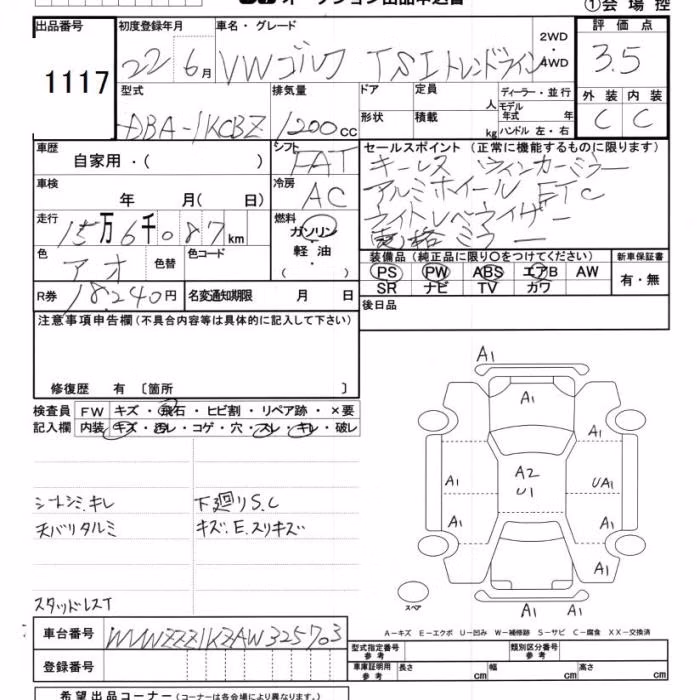 オークション出品申込書
①会場控
出品番号
1117
初度登録年月
22 6月
車名・グレード
VWゴルフ TSIトレンドライン
2WD・4WD
評価点
3.5
外装 内装
C C
型式
DBA-1KCBZ
排気量
1200cc
ドア 定員 人
形状 積載 kg
ディーラー・並行
モデル年式 年
ハンドル 左・右
車歴
自家用・( )
シフト
FAT
車検
年 月( 日)
冷房
AC
走行
15万6千087km
燃料
ガソリン・軽油・( )
色
アオ
色替
色コード
R券
18,240円
名変通知期限 月 日
セールスポイント (正常に機能するものに限ります)
キーレス ウィンカーミラー
アルミホイール ETC
ライトレベライザー
電格ミラー
装備品 (純正品に限り○をつけてください)
PS PW ABS エアB AW
SR ナビ TV カワ
新車保証書
有・無
後日品
注意事項申告欄 (不具合内容等は具体的に記入して下さい)
修復歴 有 〔箇所 〕
検査員記入欄
FW キズ・飛石・ヒビ割・リペア跡・×要
内装 キズ・汚レ・コゲ・穴・スレ・キレ・破レ
シートシミ.キレ
天バリタルミ
下廻りS.C
キズ.E.スリキズ
スタッドレスT
A1
A1
A1 A1
A1 A2 U1 UA1
A1 A1
A1
スペア
A1 A1
A-キズ E-エクボ U-凹み W-補修跡 S-サビ C-腐食 XX-交換済
車台番号
WVWZZZ1KZAW325703
登録番号
型式指定番号 参考
類別区分番号 参考
車庫証明用 参考
長さ cm
幅 cm
高さ cm
希望出品コーナー (コーナーは各会場により異なります。)